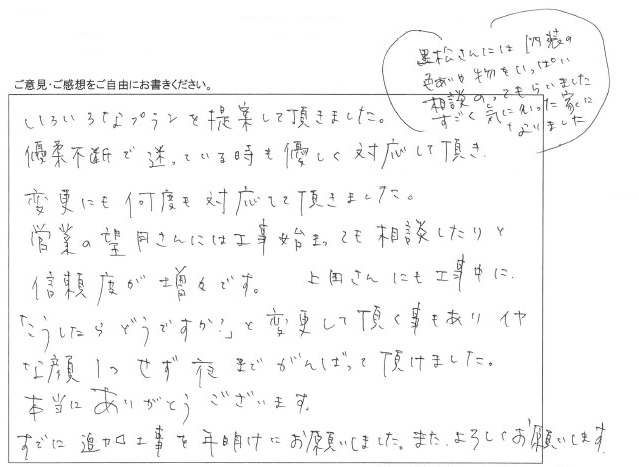 ご意見・ご感想をご自由にお書きください。
黒松さんには内装の
色あいや物をいっぱい
相談のってもらいました
すごく気に入った家に
なりました
いろいろなプランを提案して頂きました。
優柔不断で迷っている時も優しく対応して頂き、
変更にも何度も対応して頂きました。
営業の望月さんには工事始まっても相談したりと
信頼度が増々です。 上田さんにも工事中に、
「こうしたらどうですか?」と変更して頂く事もあり イヤ
な顔1つせず夜までがんばって頂けました。
本当にありがとうございます。
すでに追加工事を年明けにお願いしました。また、よろしくお願いします。